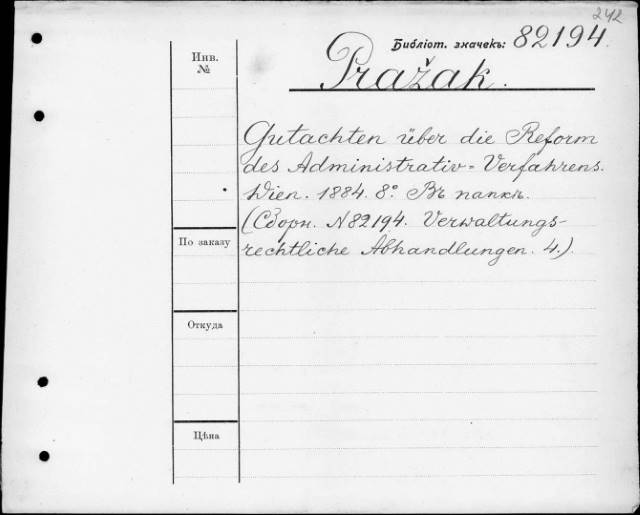 242
Библіот. значекъ: 82194.
Инв.
№
Pražak.
Gutachten über die Reform
des Administrativ-Verfahrens.
Wien. 1884. 8º. Въ папкѣ.
(Сборн. N 82194. Verwaltungs-
rechtliche Abhandlungen. 4.).
По заказу
Откуда
Цѣна